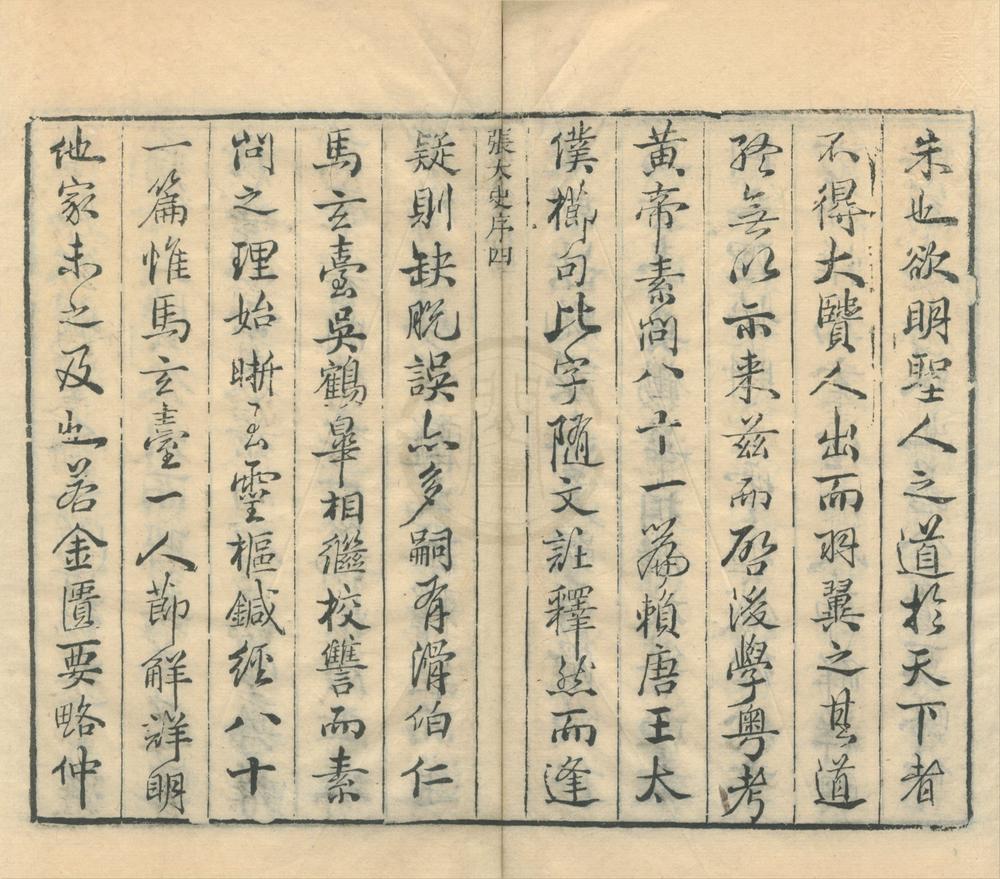 朱也欲明聖人之道於天下者
不得大賢人出而羽翼之其道
終無以示来兹而啓後學粤考
黄帝素問八十一篇賴唐王太
僕櫛句比字隨文註釋然而逢
張太史序四
疑則缺脱誤亦多嗣有滑伯仁
馬玄臺吳鶴皐相繼校讐而素
問之理始晣至靈樞鍼經八十
一篇惟馬玄臺一人節解詳明
他家未之及也若金匱要略仲